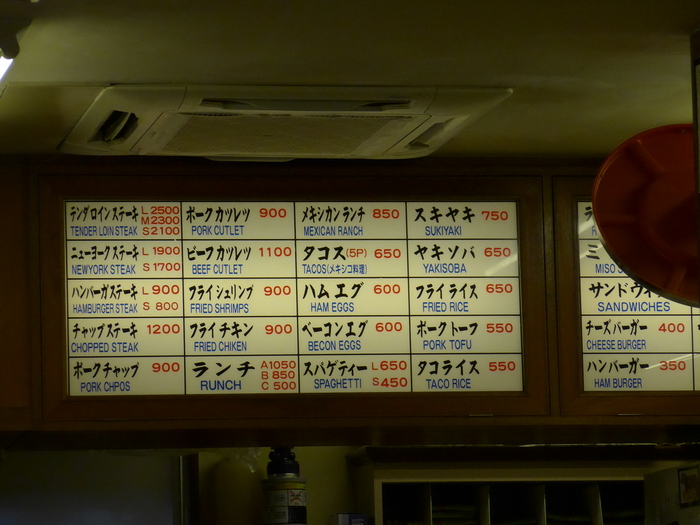 テンダロインステーキ L 2500
M 2300
TENDER LOIN STEAK S 2100
ポークカツレツ 900
PORK CUTLET
メキシカンランチ 850
MEXICAN RANCH
スキヤキ 750
SUKIYAKI
ニューヨークステーキ L 1900
NEWYORK STEAK S 1700
ビーフカツレツ 1100
BEEF CUTLET
タコス(5P) 650
TACOS(メキシコ料理)
ヤキソバ 650
YAKISOBA
ハンバーガステーキ L 900
HAMBURGER STEAK S 800
フライシュリンプ 900
FRIED SHRIMPS
ハムエグ 600
HAM EGGS
フライライス 650
FRIED RICE
チャップステーキ 1200
CHOPPED STEAK
フライチキン 900
FRIED CHIKEN
ベーコンエグ 600
BECON EGGS
ポークトーフ 550
PORK TOFU
ポークチャップ 900
PORK CHPOS
ランチ A 1050
B 850
RUNCH C 500
スパゲティー L 650
SPAGHETTI S 450
タコライス 550
TACO RICE
ミ
MISO
サンドウ
SANDWICHES
チーズバーガー 400
CHEESE BURGER
ハンバーガー 350
HAM BURGER